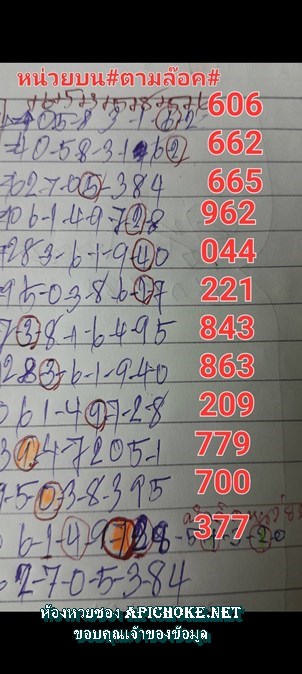 หน่วยบน#ตามล๊อค#
606
-0-5-8-3-1-6-2- 662
-0-5-8-3-1-6-2
62-7-0-5-3-8-4 665
0-6-1-4-9-7-2-8 962
7283-6-1-9-4-0 044
95-0-3-8-6-1-7 221
7-3-8-1-6-4-9-5 843
283-6-1-9-4-0 863
061-4-9-7-2-8 209
3-9-4-7-2-0-5-1 779
9-5-0-3-8-3-9-5 700
377
6-1-4-9-7-2-8-
6 2-7-0-5-3-8-4
ห้องหวยซอง APICHOKE.NET
ขอบคุณเจ้าของข้อมูล